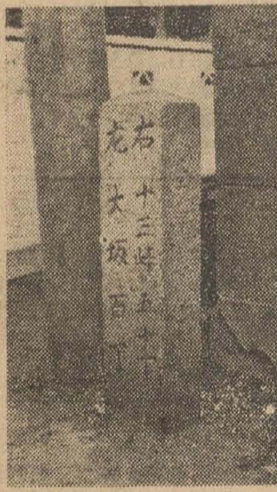 右十三峠五十丁
左大坂百丁